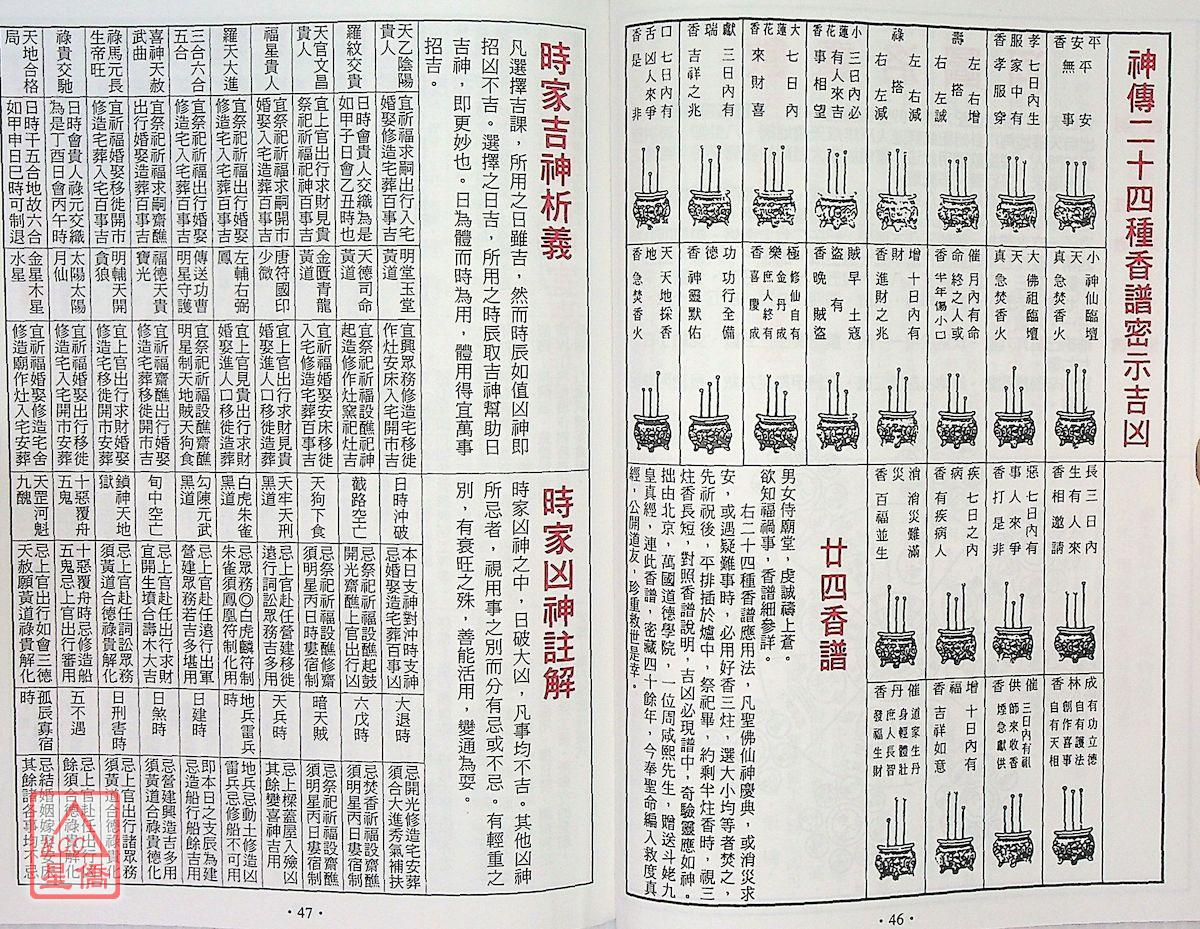 神傳二十四種香譜密示吉凶
平安香 平安無事
孝服香 七日內生家中有孝服穿
壽 左右增 搭 右左誠
祿 左右減 搭 右左減
小蓮花香 三日內必有人來吉事相望
大蓮花香 七日內來財喜
獻瑞香 三日內有吉祥之兆
口舌香 七日內有凶人來爭是非
小天真香 神仙臨壇急焚香火
大天真香 佛祖臨壇急焚香火
催命香 月內有命終之人或半年傷小口
增財香 十日內有進財之兆
賊盜香 早有土寇晚有賊盜
極樂香 修仙自有金丹成庶人終有喜慶成
功德香 功行全備神靈默佑
天地香 天地採香急焚香火
長生香 三日內有人來相邀請
惡事香 七日內有人來爭打是非
疾病香 七日之內有疾病人
消災香 消災難滿百福並生
成林香 有功立德自有護法創作喜事自有天相
催供香 三日內有祖師來收香煙急獻供
增福香 十日內有吉祥如意
催丹香 道家生丹身輕體壯庶人長智發福生財
廿四香譜
男女侍廟堂，虔誠禱上蒼。
欲知福禍事，香譜細參詳。
右二十四種香譜應用法，凡聖佛仙神慶典，或消災求
安，或遇疑難事時，必用好香三炷，選大小均等者焚之，
先祈祝後，平排插於爐中，祭祀畢，約剩半炷香時，視三
炷香長短，對照香譜說明，吉凶必現譜中，奇驗靈應如神。
拙由北京，萬國道德學院，一位周咸熙先生，贈送斗姥九
皇真經，連此香譜，密藏四十餘年，今奉聖命編入救度真
經，公開道友，珍重救世是幸。
·46·
時家吉神析義
凡選擇吉課，所用之日雖吉，然而時辰如值凶神即
招凶不吉。選擇之日吉，所用之時辰取吉神幫助日
吉神，即更妙也。日為體而時為用，體用得宜萬事
招吉。
天乙陰陽貴人 宜祈福求嗣出行入宅婚娶修造宅葬百事吉
羅紋交貴 日時會貴人交織為是如甲子日會乙丑時也
天官文昌貴人 宜上官出行求財見貴祭祀祈福祀神百事吉
福星貴人 宜祭祀祈福求嗣開市婚娶入宅造葬百事吉
羅天大進 宜祭祀祈福出行婚娶修造入宅安葬百事吉
三合六合五合 宜祭祀祈福出行婚娶修造宅入宅葬百事吉
喜神天赦武曲 宜祭祀祈福求嗣齋醮出行婚娶造葬百事吉
祿馬元長生帝旺 宜祈福婚娶移徙開市修造宅葬入宅百事吉
祿貴交馳 日時會貴人祿元交織為是丁酉日會丙午時
天地合格局 日時干五合地故六合如甲申日己時可制退
明堂玉堂黃道 宜興眾務修造宅移徙作灶安床入宅開市吉
天德司命黃道 宜祭祀祈福設醮祀神起造修作灶窯祀灶吉
金匱青龍黃道 宜祈福婚娶安床移徙入宅修造宅葬百事吉
唐符國印少微 宜上官出行求財見貴婚娶進人口移徙造葬
左輔右弼鳳 宜上官見貴出行求財婚娶進人口移徙造葬
傳送功曹明星守護 宜祭祀祈福設醮齋醮明星制天地賊天狗食
福德天貴寶光 宜祈福齋醮出行婚娶修造宅葬移徙開市吉
明輔天開貪狼 宜上官出行求財婚娶修造宅移徙開市安葬
太陽太陰月仙 宜祈福婚娶出行移徙修造入宅開市安葬
金星木星水星 宜祈福婚娶修造宅舍修造廟作灶入宅安葬
時家凶神註解
時家凶神之中，日破大凶，凡事均不吉。其他凶神
所忌者，視用事之別而分有忌或不忌。有輕重之
別，有衰旺之殊，善能活用，變通為要。
日時沖破 本日支神對沖時支神忌婚娶造宅葬百事凶
截路空亡 忌祭祀祈福設醮起鼓開光齋醮上官出行凶
天狗下食 忌祭祀祈福設醮修齋須明星丙日時婁宿制
天牢天刑黑道 忌上官赴任營建移徙遠行詞訟眾務吉多用
白虎朱雀黑道 忌眾務◎白虎麟符制朱雀須鳳凰符制化用
勾陳元武黑道 忌上官赴任遠行出軍營建眾務若吉多堪用
旬中空亡 忌上官赴任出行求財宜開生墳合壽木大吉
鎖神天地獄 忌上官赴任詞訟眾務須黃道合德祿貴解化
十惡覆舟五鬼 十惡覆舟時忌修造船五鬼忌上官出行審用
天罡河魁九醜 忌上官出行如會三德天赦願黃道祿貴解化
大退時 忌開光修造宅安葬須合大進秀氣補扶
六戊時 忌焚香祈福設齋醮須明星丙日婁宿制
暗天賊 忌祭祀祈福設齋醮須明星丙日婁宿制
天兵時 忌上樑蓋屋入殮凶其餘變喜神吉用
地兵雷兵時 地兵忌動土修造凶雷兵忌修船不可用
日建時 即本日之支辰為建忌造船行船餘吉用
日煞時 忌營建興造吉多用須黃道合祿貴德化
日刑害時 忌上官出行諸眾務須黃道合德祿貴化
五不遇 忌上官赴任出行凶餘須合德祿貴化
孤辰寡宿時 忌結婚姻嫁娶安床其餘諸各事均不忌
·47·
NCC
星僑